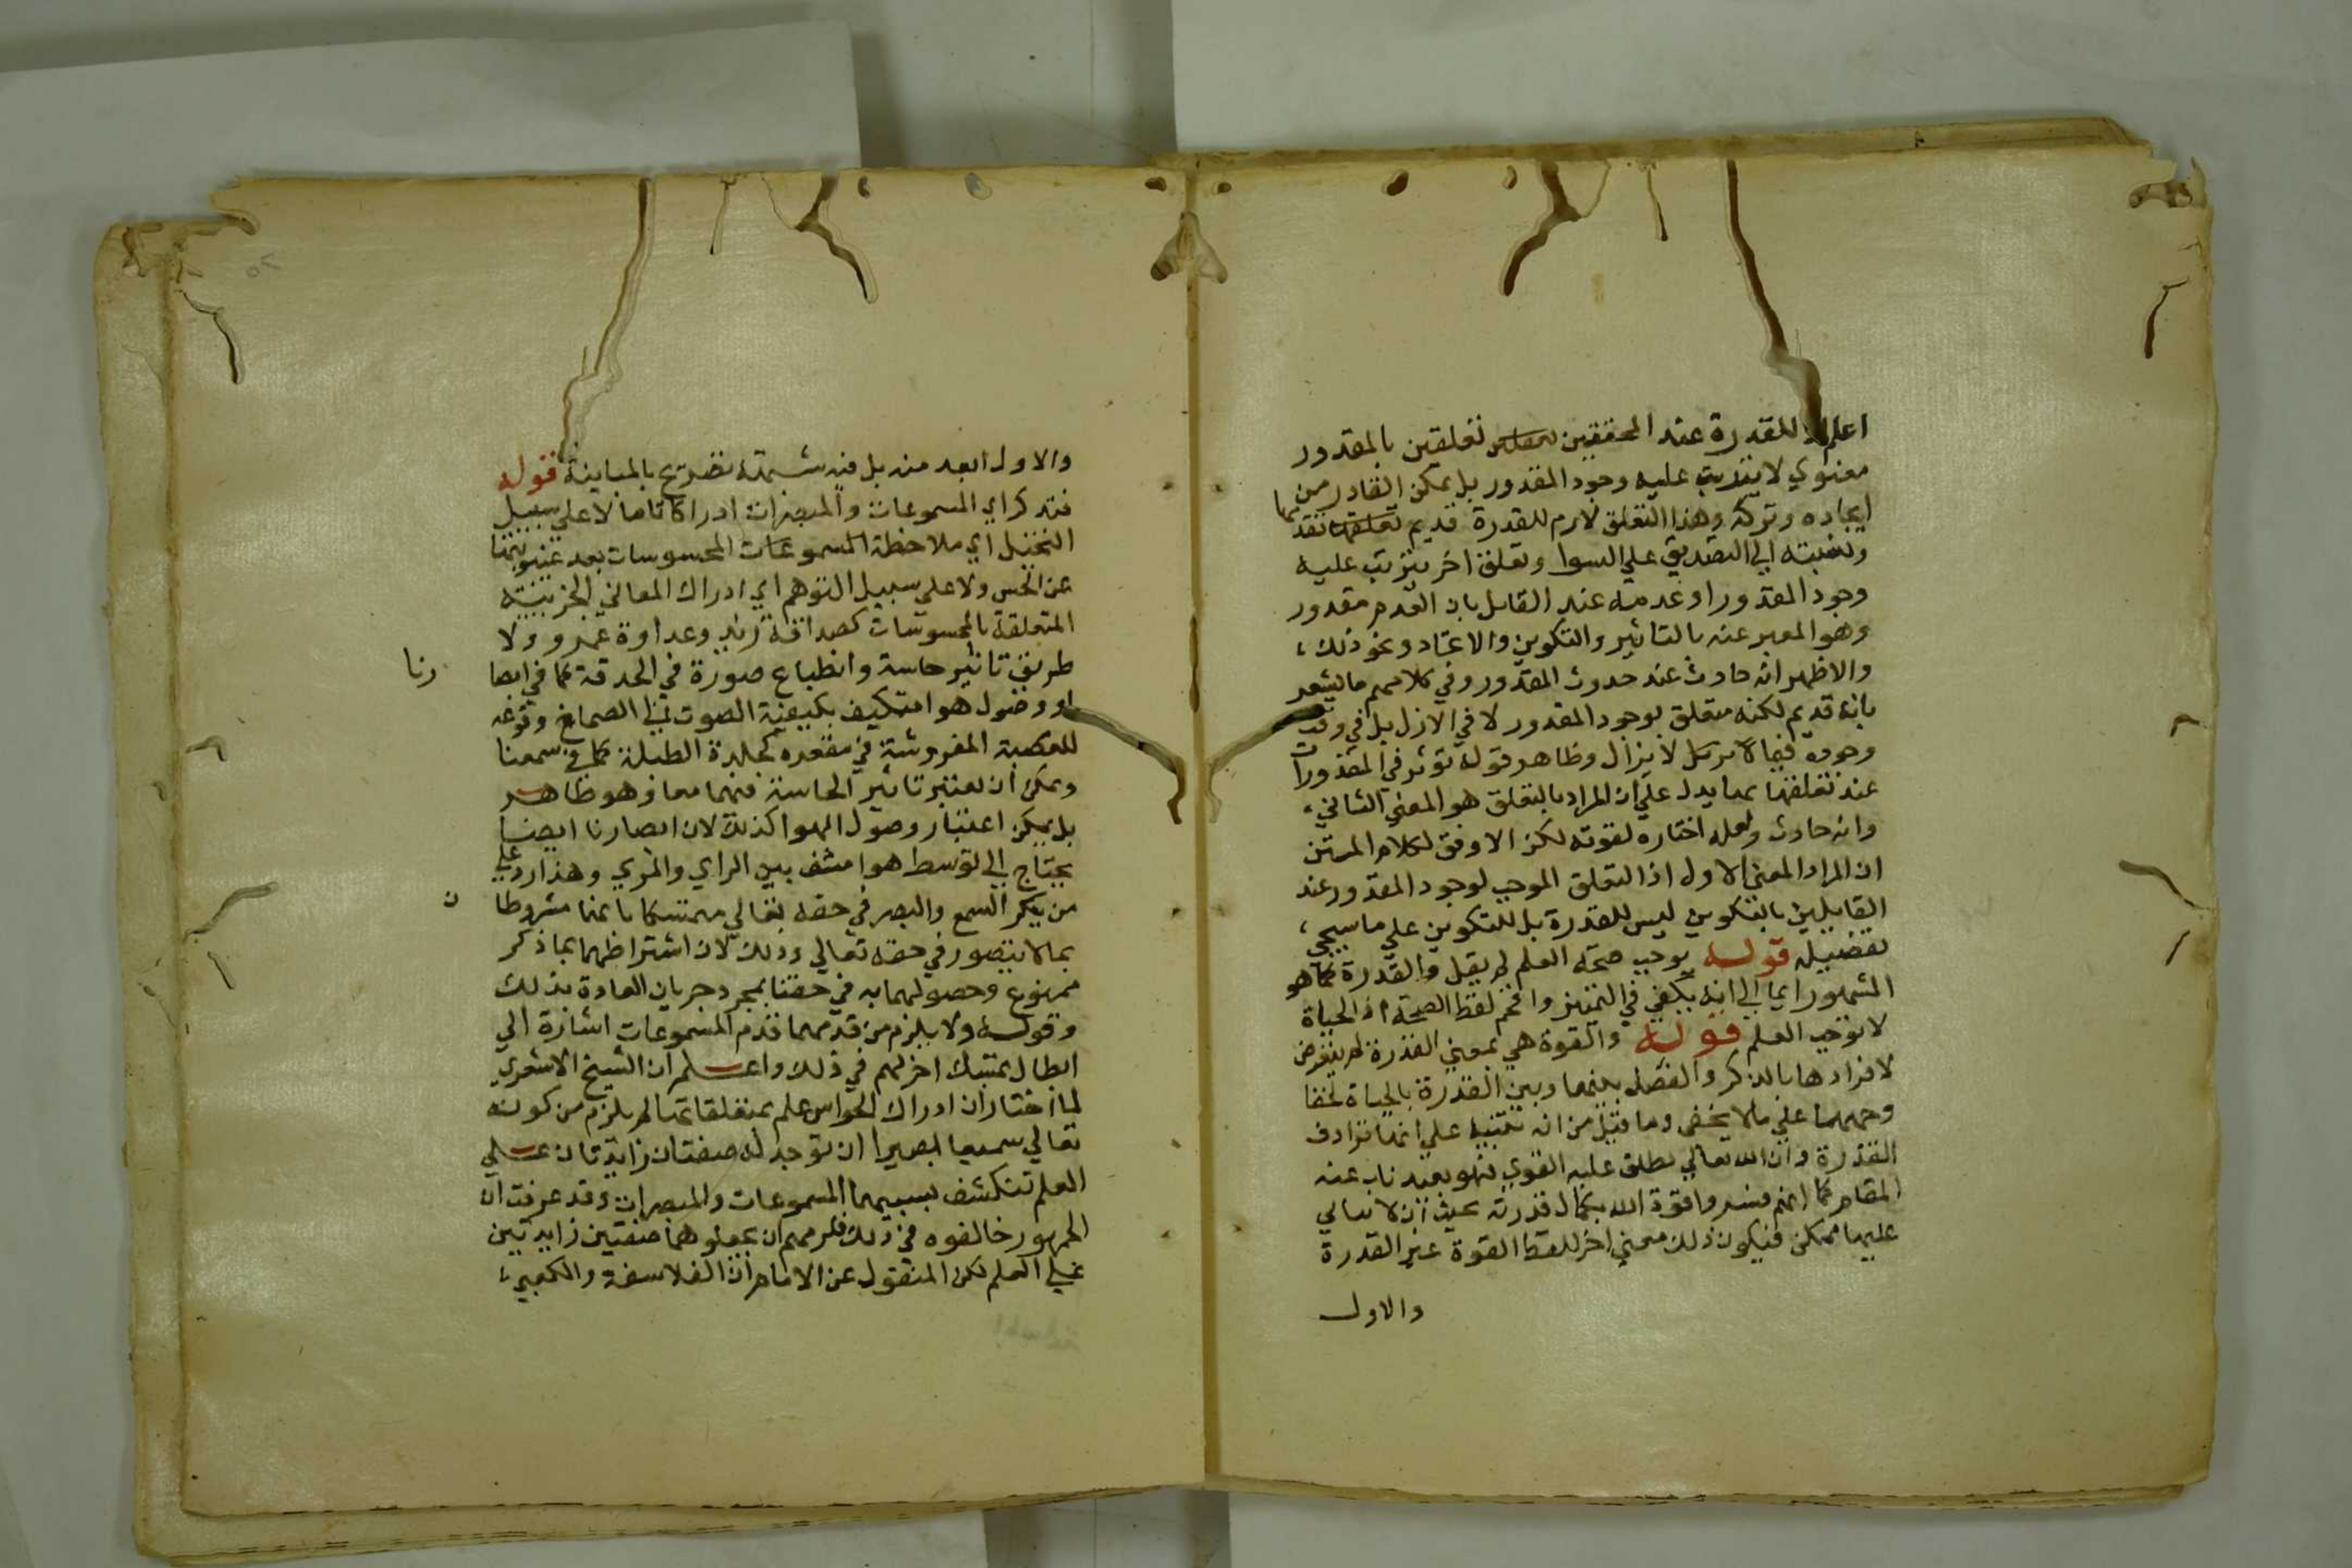 اعلم ان للقدرة عند المحققين تعلقين بالمقدور
معنوي لا يترتب عليه وجود المقدور بل يمكن القادر من
ايجاده وتركه وهذا التعلق لازم للقدرة قديم بقدمها
ونسبته الي الضدين علي السوا وتعلق اخر يترتب عليه
وجود المقدور او عدمه عند القايل بان العدم مقدور
وهو المعبر عنه بالتاثير والتكوين والايجاد ونحو ذلك
والاظهر انه حادث عند حدوث المقدور وفي كلامهم ما يشعر
بانه قديم لكنه متعلق بوجود المقدور لا في الازل بل في وقت
وجوده فيما لا يزال وظاهر قوله تؤثر في المقدورات
عند تعلقها بما يدل علي ان المراد بالتعلق هو المعني الثاني
وانه حادث ولعله اختاره لقوته لكن الاوفق لكلام المتن
ان المراد المعني الاول اذ التعلق الموجب لوجود المقدور عند
القايلين بالتكوين ليس للقدرة بل للتكوين علي ما سيجي
تفصيله قوله يوجب صحة العلم لم يقل والقدرة كما هو
المشهور ايما الي انه يكفي في التمييز واقحم لفظ الصحة اذ الحياة
لا توجب العلم قوله والقوة هي بمعني القدرة لم يتعرض
لافرادها بالذكر والفصل بينهما وبين القدرة بالحياة لخفا
وجههما علي ما لا يخفي وما قيل من انه تنبيه علي انهما ترادف
القدرة وان الله تعالي يطلق عليه القوي فهو بعيد ناب عنه
المقام كما انهم فسروا قوة الله بكمال قدرته بحيث
عليها ممكن فيكون ذلك معني اخر للفظ القوة غير القدرة
والاول
والاول ابعد منه بل فيه شمة تصريح بالمباينة قوله
فتدرك اي المسموعات والمبصرات ادراكا تاما لا علي سبيل
التخيل اي ملاحظة المحسوسات بعد غيبوبتها
عن الحس ولا علي سبيل التوهم اي ادراك المعاني الجزيية
المتعلقة بالمحسوسات كصداقة زيد وعداوة عمرو ولا
طريق تاثير حاسة وانطباع صورة في الحدقة كما في ابصا رنا
او وصول هوا متكيف بكيفية الصوت الي الصماخ وقرعه
للعصبة المفروشة في مقعره كجلدة الطبلة كما في سمعنا
ويمكن ان يعتبر تاثير الحاسة فيهما معا وهو ظاهر
بل يمكن اعتبار وصول الهوا كذلك لان ابصارنا ايضا
يحتاج الي توسط هوا مشف بين الراي والمرئي وهذا رد علي
من ينكر السمع والبصر في حقه تعالي متمسكا بانهما مشروطا ن
بما لا يتصور في حقه تعالي وذلك لان اشتراطهما بما ذكر
ممنوع وحصولهما به في حقنا بمجرد جريان العادة بذلك
وقوله ولا يلزم من قدمهما قدم المسموعات اشارة الي
ابطال تمسك اخر لهم في ذلك واعلم ان الشيخ الاشعري
لما اختار ان ادراك الحواس علم بمتعلقاتها لم يلزم من كونه
تعالي سميعا بصيرا ان توجد له صفتان زايدتان علي
العلم تنكشف بسببهما المسموعات والمبصرات وقد عرفت ان
الجمهور خالفوه في ذلك فلزمهم ان يجعلوهما صفتين زايدتين
علي العلم لكن المنقول عن الامام ان الفلاسفة والكعبي